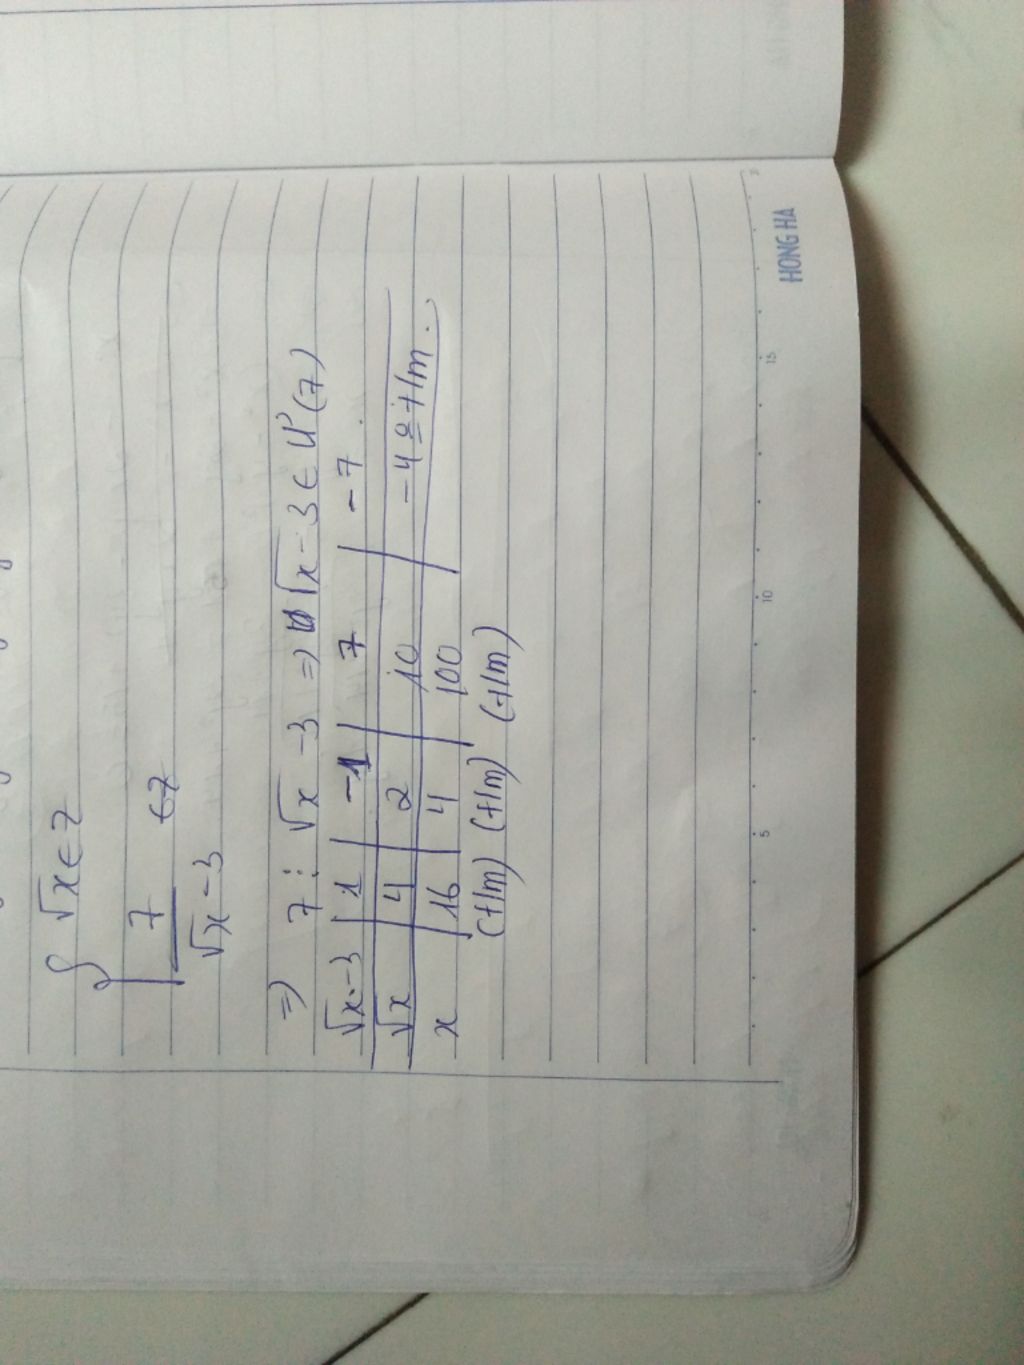 √x ∈ Z
7 ∈ Z
√x - 3
=) 7 ⋮ √x - 3 =) √x - 3 ∈ Ư(7)
√x - 3 | 1 | -1 | 7 | -7
√x | 4 | 2 | 10 | -4
x | 16 | 4 | 100
(t/m) (t/m) (t/m)
5 10 15
HONG HA